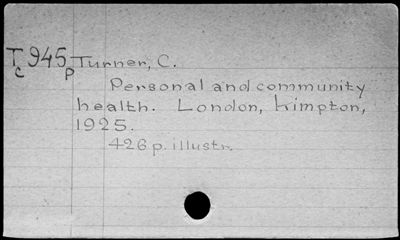 T 945 Turner, C.
c p
Personal and community
health. London, Kimpton,
1925.
426 p. illustr.